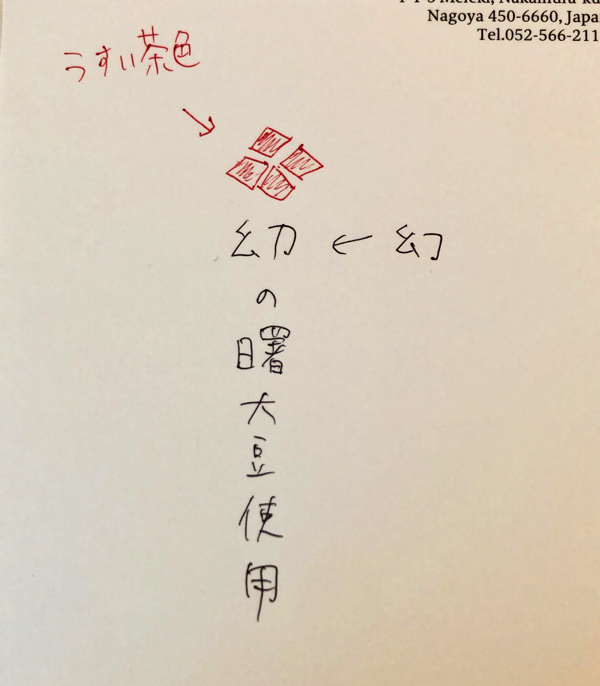 1-1-3 Meieki, Nakamura-ku
Nagoya 450-6660, Japa
Tel.052-566-211
うすい茶色
→
幼 ← 幻
の
曙
大
豆
使
用